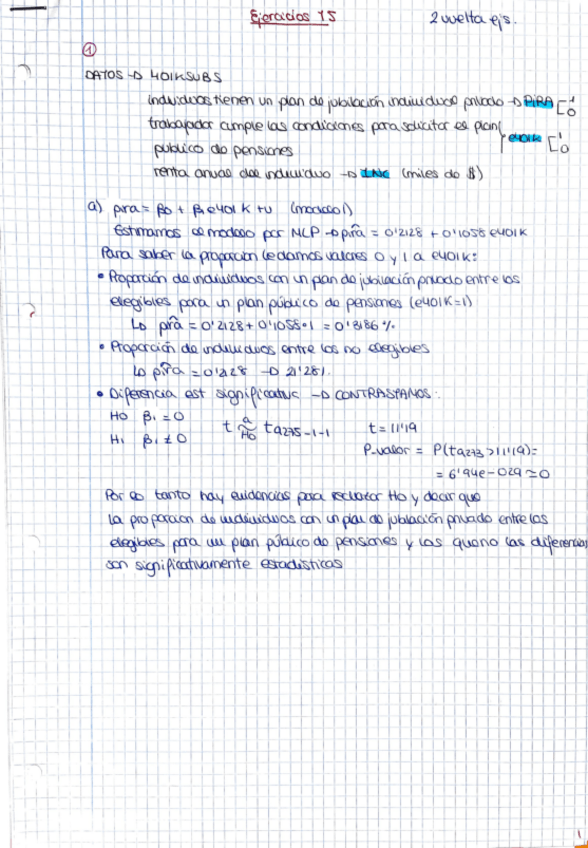 Ejercicios T5
2 vuelta ejs.
1
DATOS → 401KSUBS
individuos tienen un plan de jubilación individual privado → PIRA [1 0
trabajador cumple las condiciones para solicitar el plan
público de pensiones } e401k [1 0
renta anual del individuo → INC (miles de $)
a) pira = β0 + β1 e401K + u (modelo 1)
Estimamos el modelo por MLP → pirâ = 0'2128 + 0'1058 e401K
Para saber la proporción le damos valores 0 y 1 a e401K:
• Proporción de individuos con un plan de jubilación privado entre los
elegibles para un plan público de pensiones (e401K=1)
↳ pirâ = 0'2128 + 0'1058·1 = 0'3186 %
• Proporción de individuos entre los no elegibles
↳ pirâ = 0'2128 → 21'28%.
• Diferencia est significativa → CONTRASTAMOS:
H0 β1 = 0
H1 β1 ≠ 0
t ~ᵃ H0 t9275-1-1
t = 11'19
P-valor = P(t9273 > 11'19) =
= 6'94e-029 ≃ 0
Por lo tanto hay evidencias para rechazar H0 y decir que
la proporción de individuos con un plan de jubilación privado entre los
elegibles para un plan público de pensiones y los que no las diferencias
son significativamente estadísticas
1